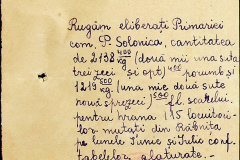 Rugăm eliberați Primăriei
com. P. Solonica, cantitatea
de 2138 400/kg (două mii una sută
trei zeci și opt) 400 porumb și
1219 560/kg (una mie două sute
nouă sprezeci) 560 fl. soarelui
pentru hrana 175 locuito-
rilor mutați din Râbnița
pe lunele Iunie și Iulie conf.
tabelelor alăturate.